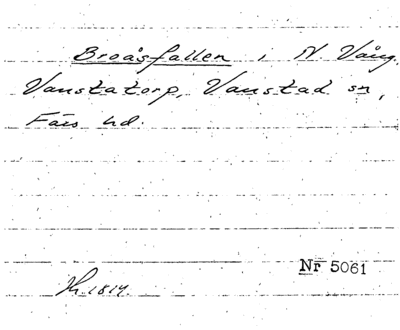 Broåsfallen i N Vång,
Vanstatorp, Vanstad sn,
Färs hd.
Nr 5061
1814.